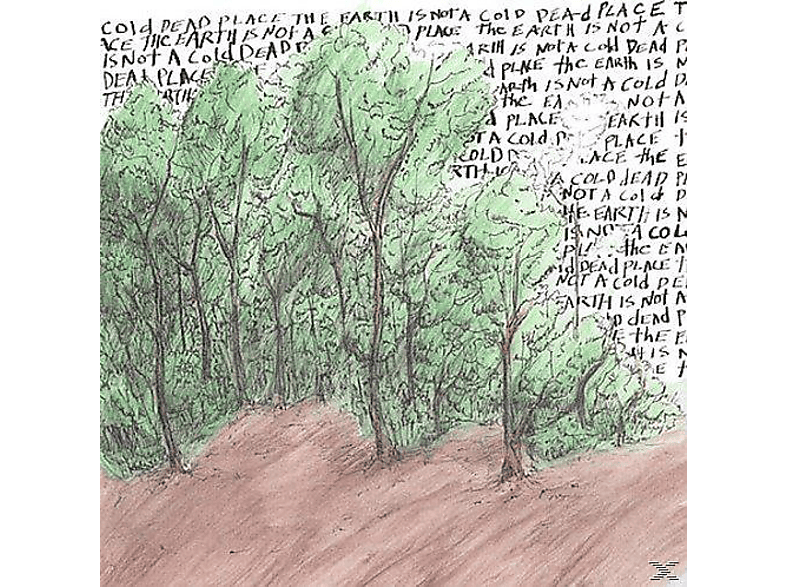 COLD DEAD PLACE THE EARTH IS NOT A COLD DEAD PLACE T
ACE THE EARTH IS NOT A C D PLACE THE EARTH IS NOT A C
IS NOT A COLD DEAD P ARTH IS NOT A COLD DEAD P
DEAD PLACE D PLACE THE EARTH IS N
TH EARTH ARTH IS NOT A COLD D
THE EA NOT A
D PLACE EARTH IS
OT A COLD D PLACE T
COLD D LACE THE E
RTH IS A COLD DEAD P
NOT A COLD D
HE EARTH IS N
IS NOT A COL
PL THE EA
LD DEAD PLACE T
NOT A COLD DE
EARTH IS NOT A
D DEAD P
E THE E
H IS N
E T